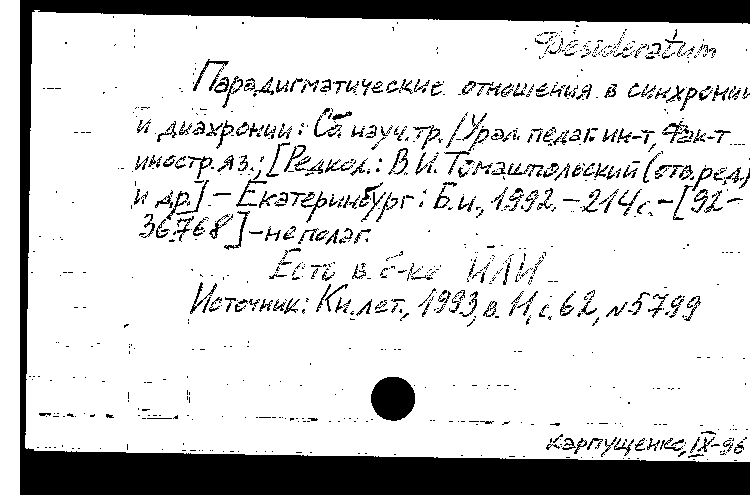 Desideratum
Парадигматические отношения в синхронии
и диахронии: Сб. науч. тр. / Урал. педаг. ин-т, Фак-т
иностр. яз.; [Редкол.: В. И. Томашпольский (отв. ред.)
и др.] – Екатеринбург: Б.и., 1992. – 214 с. – [92-
36768] – не полаг.
Есть в б-ке ИЛИ
Источник: Кн. лет., 1993, в. 11, с. 62, N 5799
Карпущенко, IX-96